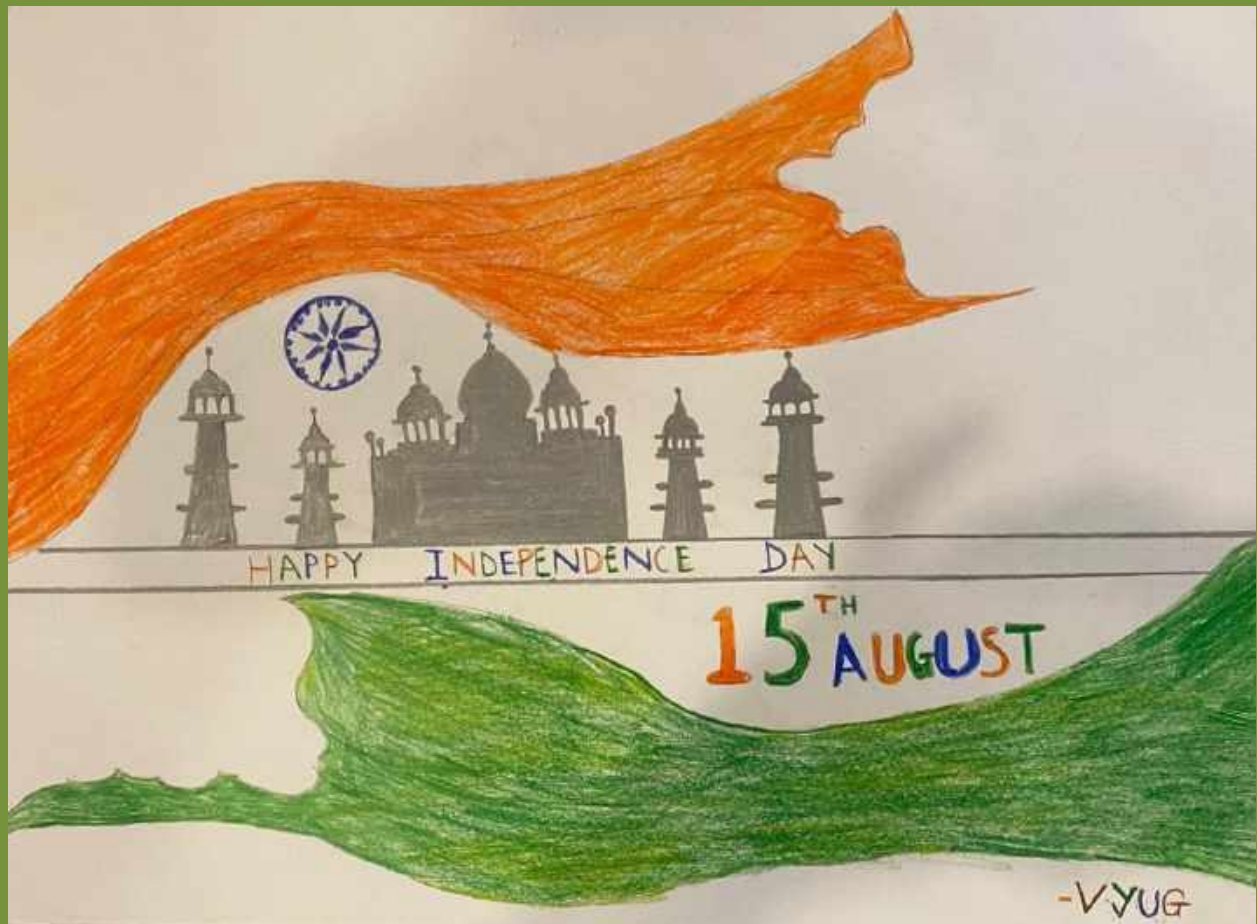 HAPPY INDEPENDENCE DAY
15TH AUGUST
-VYUG